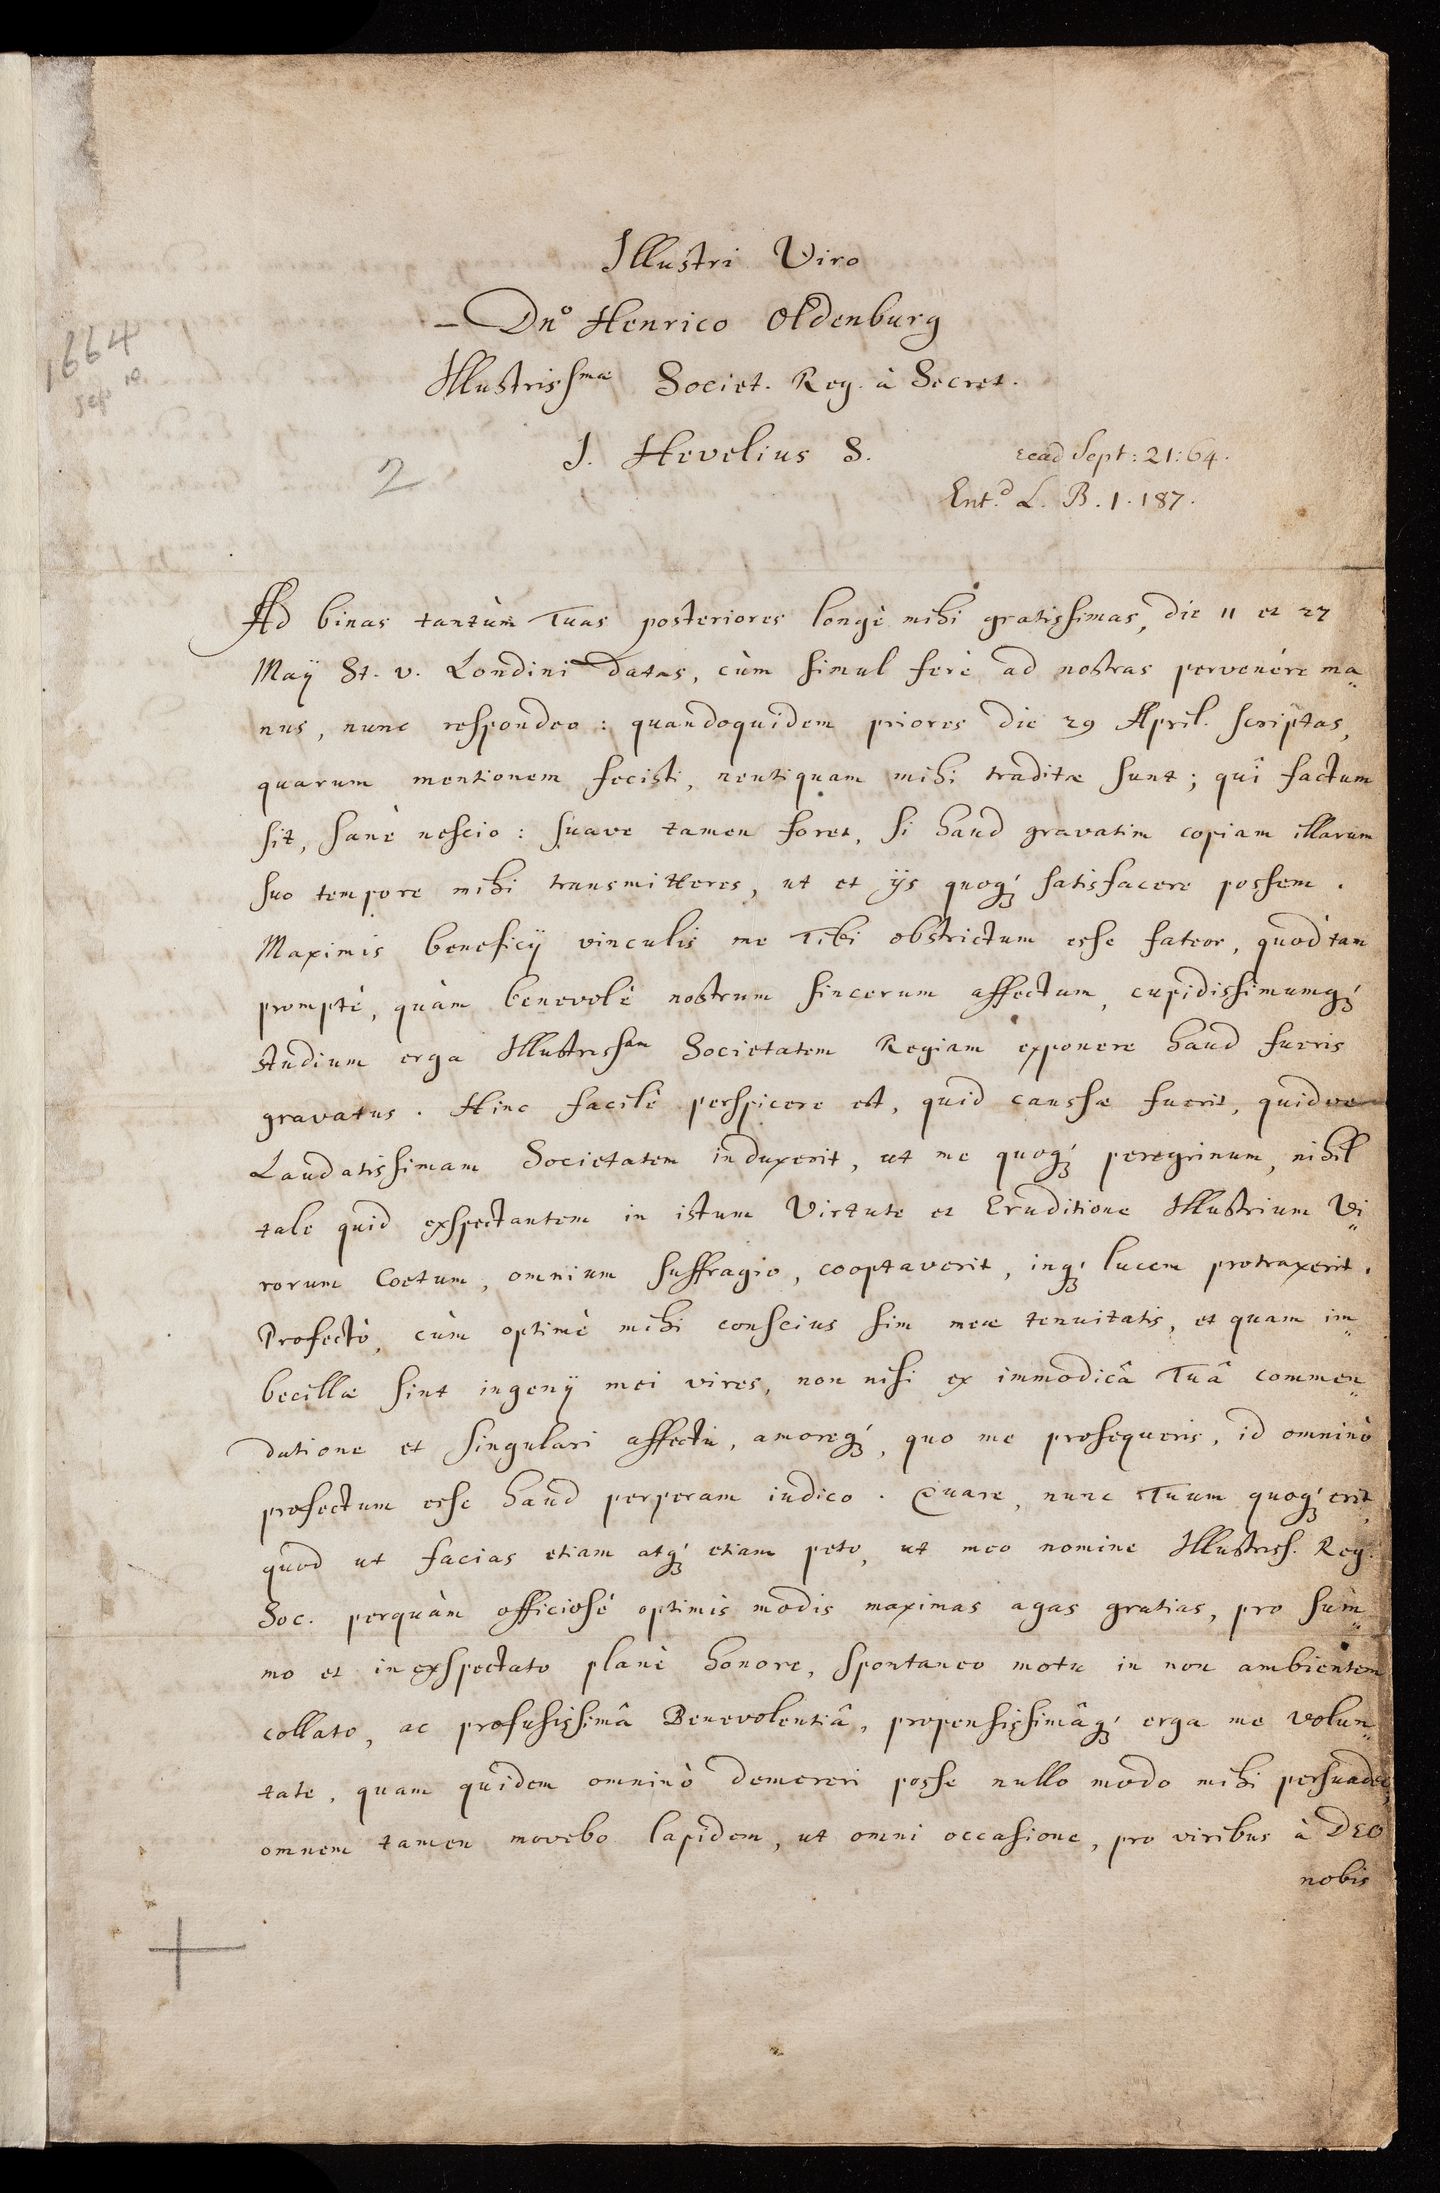 Illustri Viro
Dn.º Henrico Oldenburg
1664
Sep 10
Illustrissmæ Societ. Reg. à Secret.
J. Hevelius S.
read Sept: 21: 64.
2
Ent.d L. B. 1. 187.
Ad binas tantùm Tuas posteriores longè mihi gratissimas, die 11 et 27
Maÿ St. v. Londini datas, cùm simul ferè ad nostras pervenére ma„
nus, nunc respondeo: quandoquidem priores die 29 April. scriptas,
quarum mentionem fecisti, neutiquam mihi traditæ sunt; quî factum
sit, sanè nescio: suave tamen foret, si haud gravatim copiam illarum
suo tempore mihi transmitteres, ut et ijs quoq; satisfacere possem.
Maximis beneficÿ vinculis me Tibi obstrictum esse fateor, quòd tam
promptè, quàm benevolè nostrum sincerum affectum, cupidissimumq;
studium erga Illustrissam Societatem Regiam exponere haud fueris
gravatus. Hinc facilè perspicere est, quid caussæ fuerit, quidve
Laudatissimam Societatem induxerit, ut me quoq; peregrinum, nihil
tale quid exspectantem in istum Virtute et Eruditione Illustrium Vi„
rorum Coetum, omnium suffragio, cooptaverit, inq; lucem protraxerit.
Profectò, cùm optimè mihi conscius sim meæ tenuitatis, et quam im„
becillæ sint ingenÿ mei vires, non nisi ex immodicâ Tuâ commen„
datione et singulari affectu, amoreq;, quo me prosequeris, id omninò
profectum esse haud perperam iudico. Quare, nunc Tuum quoq; erit,
quod ut facias etiam atq; etiam peto, ut meo nomine Illustriss. Reg.
Soc. perquàm officiosè optimis modis maximas agas gratias, pro sum„
mo et inexspectato planè honore, spontaneo motu in non ambientem
collato, ac profusissimâ Benevolentiâ, propensissimâq; erga me volun„
tate, quam quidem omninò demereri posse nullo modo mihi persuadeo;
omnem tamen movebo lapidem, ut omni occasione, pro viribus à DEO
nobis